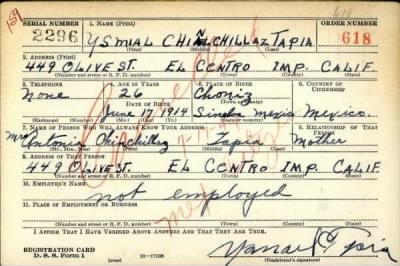 SERIAL NUMBER 1. NAME (Print) ORDER NUMBER
2296 YSMIAL CHINCHILLAZ TAPIA 618
(First) (Middle) (Last)
2. ADDRESS (Print)
449 OLIVE ST. EL CENTRO IMP. CALIF.
(Number and street or R. F. D. number) (Town) (County) (State)
3. TELEPHONE 4. AGE IN YEARS 5. PLACE OF BIRTH 6. COUNTRY OF CITIZENSHIP
None 26
DATE OF BIRTH (Town or county)
June 17 1914 Mexico Mexico.
(Exchange) (No.) (Mo.) (Day) (Yr.) (State or country)
7. NAME OF PERSON WHO WILL ALWAYS KNOW YOUR ADDRESS 8. RELATIONSHIP OF THAT PERSON
Mrs Antonia Chinchillaz Tapia Mother
(Mr., Mrs., Miss) (First) (Middle) (Last)
9. ADDRESS OF THAT PERSON
449 OLIVE ST. EL CENTRO IMP. CALIF.
(Number and street or R. F. D. number) (Town) (County) (State)
10. EMPLOYER'S NAME
not employed
11. PLACE OF EMPLOYMENT OR BUSINESS
(Number and street or R. F. D. number) (Town) (County) (State)
I AFFIRM THAT I HAVE VERIFIED ABOVE ANSWERS AND THAT THEY ARE TRUE.
REGISTRATION CARD
D. S. S. Form 1 (over)
(Registrant's signature)